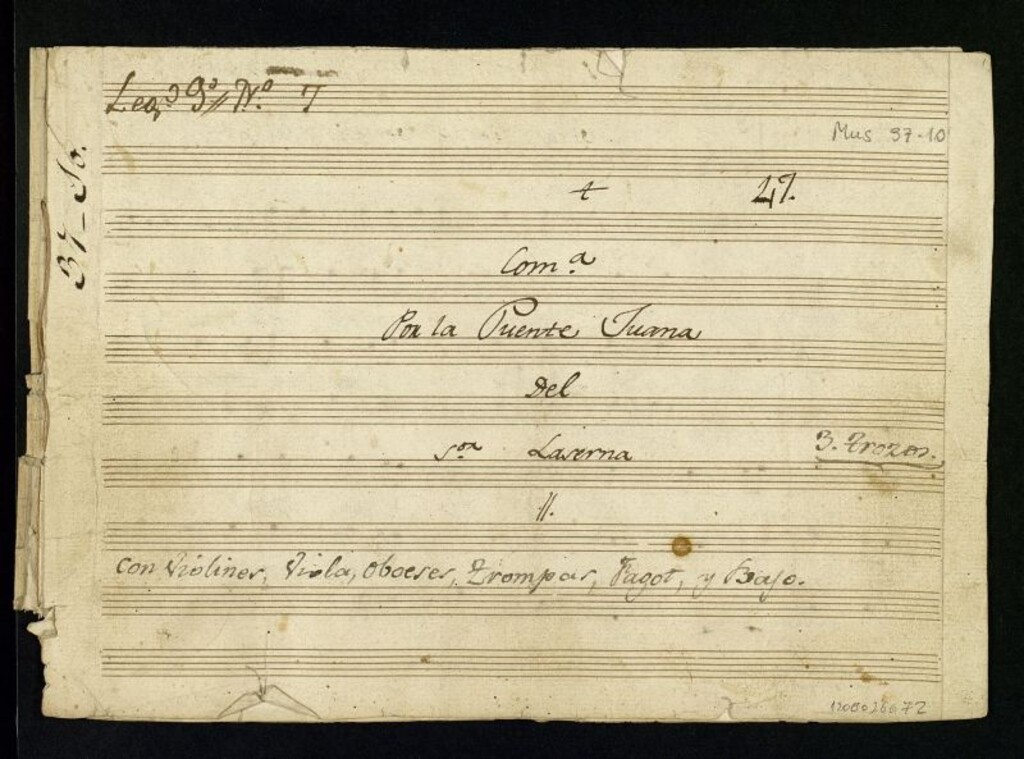 Leg.º 9º // N.º 7
Mus 97-10
37-10.
+ 47.
Com.ª
Por la Puente Juana
Del
Sor Laserna
3. trozos.
//.
Con Violines, Viola, Oboeses, Trompas, Fagot, y Bajo.